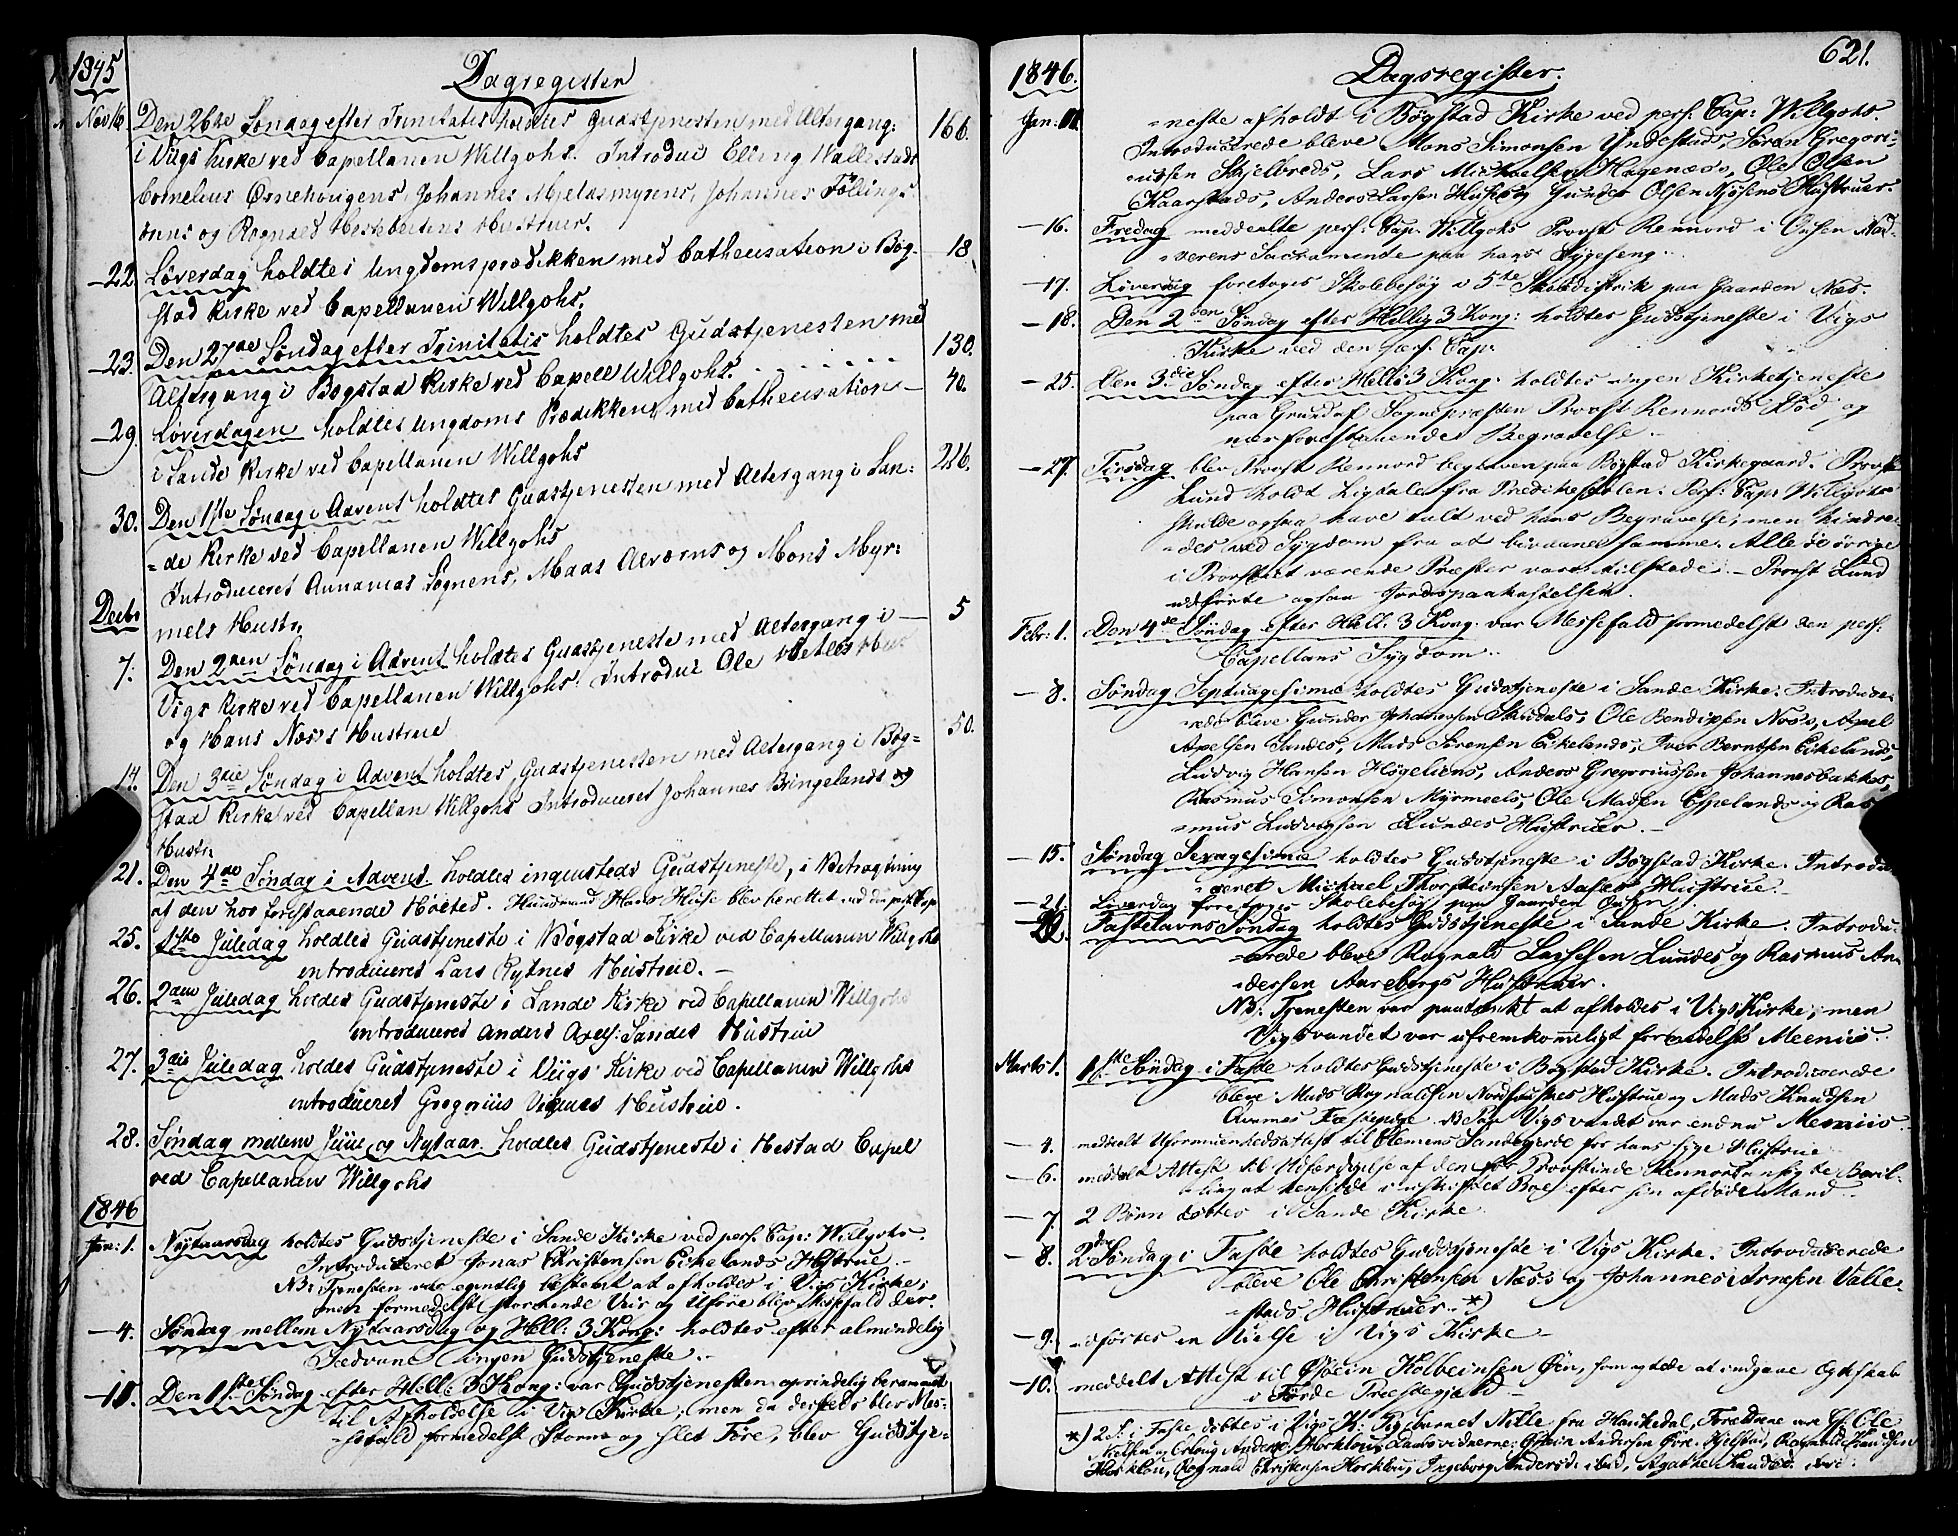 1845
Dagregister
Nov 16 Den 26de Søndag efter Trinitatis holdtes Gudstjenesten med Altergang: 166.
i Viigs Kirke ved Capellanen Willgohs. Introduc Elling Wallestads
Cornelius Ørnehougens, Johannes Mjeldsmyrens, Johannes Föllings-
og Rognald Hestebeitens Hustruer.
22. Löverdag holdtes Ungdomsprædikken med Cathecisation i Bog- 18
stad Kirke ved Capellanen Willgohs.
23. Den 27de Søndag efter Trinitatis holdtes Gudstjenesten med
Altergang i Bogstad Kirke ved Capell Willgohs. 130.
29. Löverdagen holdtes Ungdoms Prædikken med Cathecisation 40.
i Sande Kirke ved Capellanen Willgohs
30. Den 1ste Søndag i Advent holdtes Gudstjenesten med Altergang i San: 226.
=de Kirke ved Capellanen Willgohs
Introduceret Annanias Sognens, Maas Alværns og Mons Myr:
mels Hustr.
Decbr
7. Den 2den Søndag i Advent holdtes Gudstjeneste med Altergang i 5
Vigs Kirke ved Capellanen Willgohs. Introduc Ole
og Hans Næs's Hustrue
14. Den 3die Søndag i Advent holdtes Gudstjenesten med Altergang i Bog= 50.
stad Kirke ved Capellan Willgohs Introduceret Johannes Bringelands
Hustr.
21. Den 4de Søndag i Advent holdtes ingensteds Gudstjeneste, i Betragtning
af den hos forestaaende Høitid. Huusmand Hans Huse blev berettet ved
25. 1ste Juledag holdtes Gudstjeneste i Bögstad Kirke ved Capellanen Willgohs
introduceret Lars Rytnes Hustrue. –
26. 2den Juledag holdes Gudstjeneste i Sande Kirke ved Capellanen Willgohs
introduceret Anders Axels: Sandes Hustrue
27. 3die Juledag holdes Gudstjeneste i Viigs Kirke ved Capellanen Willgohs
introduceret Gregorius Hustrue.
28. Søndag mellem Juul og Nytaar holdtes Gudstjeneste i Hestad Capel
ved Capellanen Willgohs
1846
Jan: 1. Nytaarsdag holdtes Gudstjeneste i Sande Kirke ved pers. Cap: Willgohs.
Introduceret Jonas Christensen Eikelands Hustrue.
NB: Tjenesten var egentlig bestemt at afholdes i Vigs Kirke;
men formedelst stormende Veir og Uføre blev Messefald der.
– 4. Søndag mellem Nytaarsdag og Hell: 3 Kong: holdtes efter almindelig
Sædvane ingen Gudstjeneste.
– 11. Den 1ste Søndag efter Hell: 3 Kong: var Gudstjenesten oprindelig berammet
til Afholdelse i Vigs Kirke; men da dersteds blev Mes-
sefald formedelst Storm og slet Føre, blev Gudstje-
621.
1846.
Dagsregister.
Jan: 11. =neste afholdt i Bögstad Kirke ved pers. Cap: Willgohs.
Introducerede bleve Mons Simonsen Yndestads, Søren Gregori-
ussen Skjelbreds, Lars Michaelsen Hagenæs, Ole Olsen
Kaarstads, Anders Larsen Huse og Gunder Olsen Njøsens Hustruer.
– 16. Fredag meddeelte pers. Cap. Willgohs Provst Rennord i Osen Nad-
verens Sacramente paa hans Sygeseng.
– 17. Löverdag foretoges Skolebesög i 5te Skoledistrik paa Gaarden Næs.
– 18. Den 2den Søndag efter Hellig 3 Kong: holdtes Gudstjeneste i Vigs
Kirke ved den pers. Cap.
– 25. Den 3die Søndag efter Hell: 3 Kong: holdtes ingen Kirketjeneste
paa Grund af Sognepræsten Provst Rennords Død og
nærforestaaende Begravelse.
– 27. Tirsdag blev Provst Rennord begraven paa Bögstad Kirkegaard. Provst
Lund holdt Ligtale fra Predikestolen. Pers: Cap: Willgohs
skulde ogsaa have talt ved hans Begravelse, men hindre-
des ved Sygdom fra at bivaane samme. Alle de øvrige
i Provstiet værende Præster vare tilstede. – Provst Lund
udførte ogsaa Jordspaakastelsen.
Febr: 1. Den 4de Søndag efter Hell. 3 Kong. var Messefald formedelst den pers:
Capellans Sygdom.
– 8. Søndag Septuagesima holdtes Gudstjeneste i Sande Kirke. Introduce-
rede bleve Gunder Johannesen Skudals, Ole Bendixsen Næs's, Axel
Axelsen Sandes, Mads Sørensen Eikelands, Iver Berntsen Eikelands,
Ludvig Hansen Högeliens, Anders Gregoriussen Johannesbakkes,
Rasmus Simonsen Myrmeels, Ole Madsen Espelands og Ras-
mus Ludvigsen Lundes Hustruer. –
– 15. Søndag Sexagesima holdtes Gudstjeneste i Bögstad Kirke. Introdu-
ceret Michael Thorsteinsen Aases Hustrue.
– 21. Löverdag foretoges Skolebesög paa Gaarden
– 22. Fastelavns Søndag holdtes Gudstjeneste i Sande Kirke. Introdu-
cerede bleve Rognald Lassesen Lundes og Rasmus An-
dersen Aarebergs Hustruer.
NB: Tjenesten var paatænkt at afholdes i Vigs Kirke, men
Vigsvandet var ufremkommeligt formedelst Meeniis.
Marts 1. 1ste Søndag i Faste holdtes Gudstjeneste i Bögstad Kirke. Introducerede
bleve Mads Rognaldsen Nordhuusnes Hustrue og Mads Knudsen
NB Vigsvandet var endnu Meeniis
– 4. meddeelt Uformuenhedsattest til Clemens Sandegjerde for hans syge Hustrue
– 6. meddelt Attest til Udfærdigelse af den for Provstinde Rennord ansögte Bevil-
ling at hensidde i uskiftet Boe efter sin afdøde Mand.
– 7. 2 Børn døbtes i Sande Kirke
– 8. 2den Søndag i Faste holdtes Gudstjeneste i Vigs Kirke. Introducerede
bleve Ole Christensen Næss og Johannes Arnesen Valle-
stads Hustruer. *)
– 9. udførtes en Vielse i Vigs Kirke –
– 10. meddelt Attest til Øsein Kolbeinsen Øen, som agtede at indgaae Egteskab
i Førde Præstegjeld –
*) 2 S. i Faste döbtes i Vigs K. Pigebarnet Nille fra Haukedal, Forældrene ere Gf. Ole
Andersd: Horklou, Anders Øre, Hjelstad, Rognald Knudsen
Horklou, Rognald Christensen Horklou, Ingeborg Andersd: ibid, Agathe